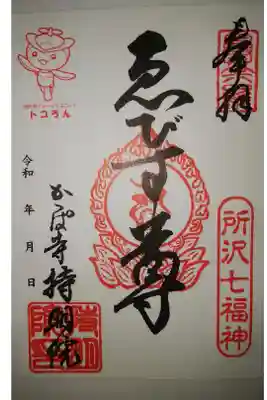 奉拝
所沢七福神
ゑびす尊
トコろん
令和 年 月 日
かっぱ寺持明院